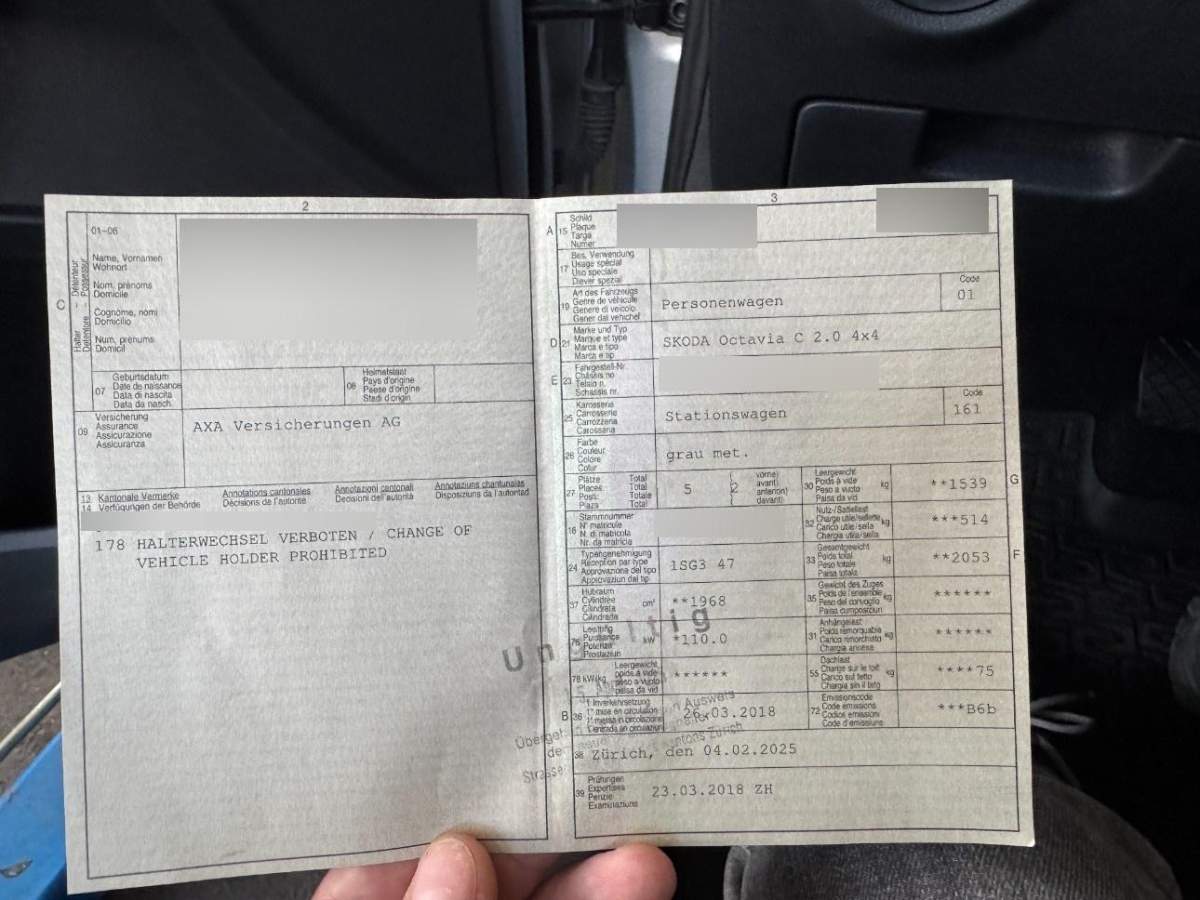 2
01-06
C
Halter Détenteur
Detentore Possessur
Name, Vornamen
Wohnort
Nom, prénoms
Domicile
Cognome, nomi
Domicilio
Num, prenums
Domicil
07
Geburtsdatum
Date de naissance
Data di nascita
Data da nasch.
08
Heimatstaat
Pays d'origine
Paese d'origine
Stadi d'origin
09
Versicherung
Assurance
Assicurazione
Assicuranza
AXA Versicherungen AG
13 Kantonale Vermerke Annotations cantonales Annotazioni cantonali Annotaziuns chantunalas
14 Verfügungen der Behörde Décisions de l'autorité Decisioni dell'autorità Disposiziuns da l'autoritad
178 HALTERWECHSEL VERBOTEN / CHANGE OF
VEHICLE HOLDER PROHIBITED
3
A 15
Schild
Plaque
Targa
Numer
17
Bes. Verwendung
Usage spécial
Uso speciale
Diever spezial
19
Art des Fahrzeugs
Genre de véhicule
Genere di veicolo
Gener dal vehichel
Personenwagen
Code
01
D 21
Marke und Typ
Marque et type
Marca e tipo
Marca e tip
SKODA Octavia C 2.0 4x4
E 23
Fahrgestell-Nr.
Châssis no
Telaio n.
Schassis nr.
25
Karosserie
Carrosserie
Carrozzeria
Carossaria
Stationswagen
Code
161
26
Farbe
Couleur
Colore
Colur
grau met.
27
Plätze Total
Places Total
Posti Totale
Plazs Total
5
( 2
vorne)
avant)
anteriori)
davant)
30
Leergewicht
Poids à vide kg
Peso a vuoto
Paisa da vid
**1539
G
18
Stammnummer
N° matricule
N. di matricola
Nr. da matricla
32
Nutz-/Sattellast
Charge utile/sellette kg
Carico utile/sella
Chargia utila/sella
***514
24
Typengenehmigung
Réception par type
Approvazione del tipo
Approvaziun dal tip
1SG3 47
33
Gesamtgewicht
Poids total kg
Peso totale
Paisa totala
**2053
F
37
Hubraum
Cylindrée cm³
Cilindrata
Cilindrada
**1968
35
Gewicht des Zuges
Poids de l'ensemble kg
Peso del convoglio
Paisa cumposiziun
******
76
Leistung
Puissance kW
Potenza
Prestaziun
*110.0
31
Anhängelast
Poids remorquable kg
Carico rimorchiato
Chargia annexe
******
78 kW/kg
Leergewicht
poids à vide
peso a vuoto
paisa da vid
******
55
Dachlast
Charge sur le toit kg
Carico sul tetto
Chargia sin il tetg
****75
B 36
1. Inverkehrsetzung
1re mise en circulation
1a messa in circolazione
1. entrada en circulaziun
26.03.2018
72
Emissionscode
Code émissions
Codice emissioni
Code d'emissiuns
***B6b
Ungültig
38 Zürich, den 04.02.2025
39
Prüfungen
Expertises
Perizie
Examinaziuns
23.03.2018 ZH